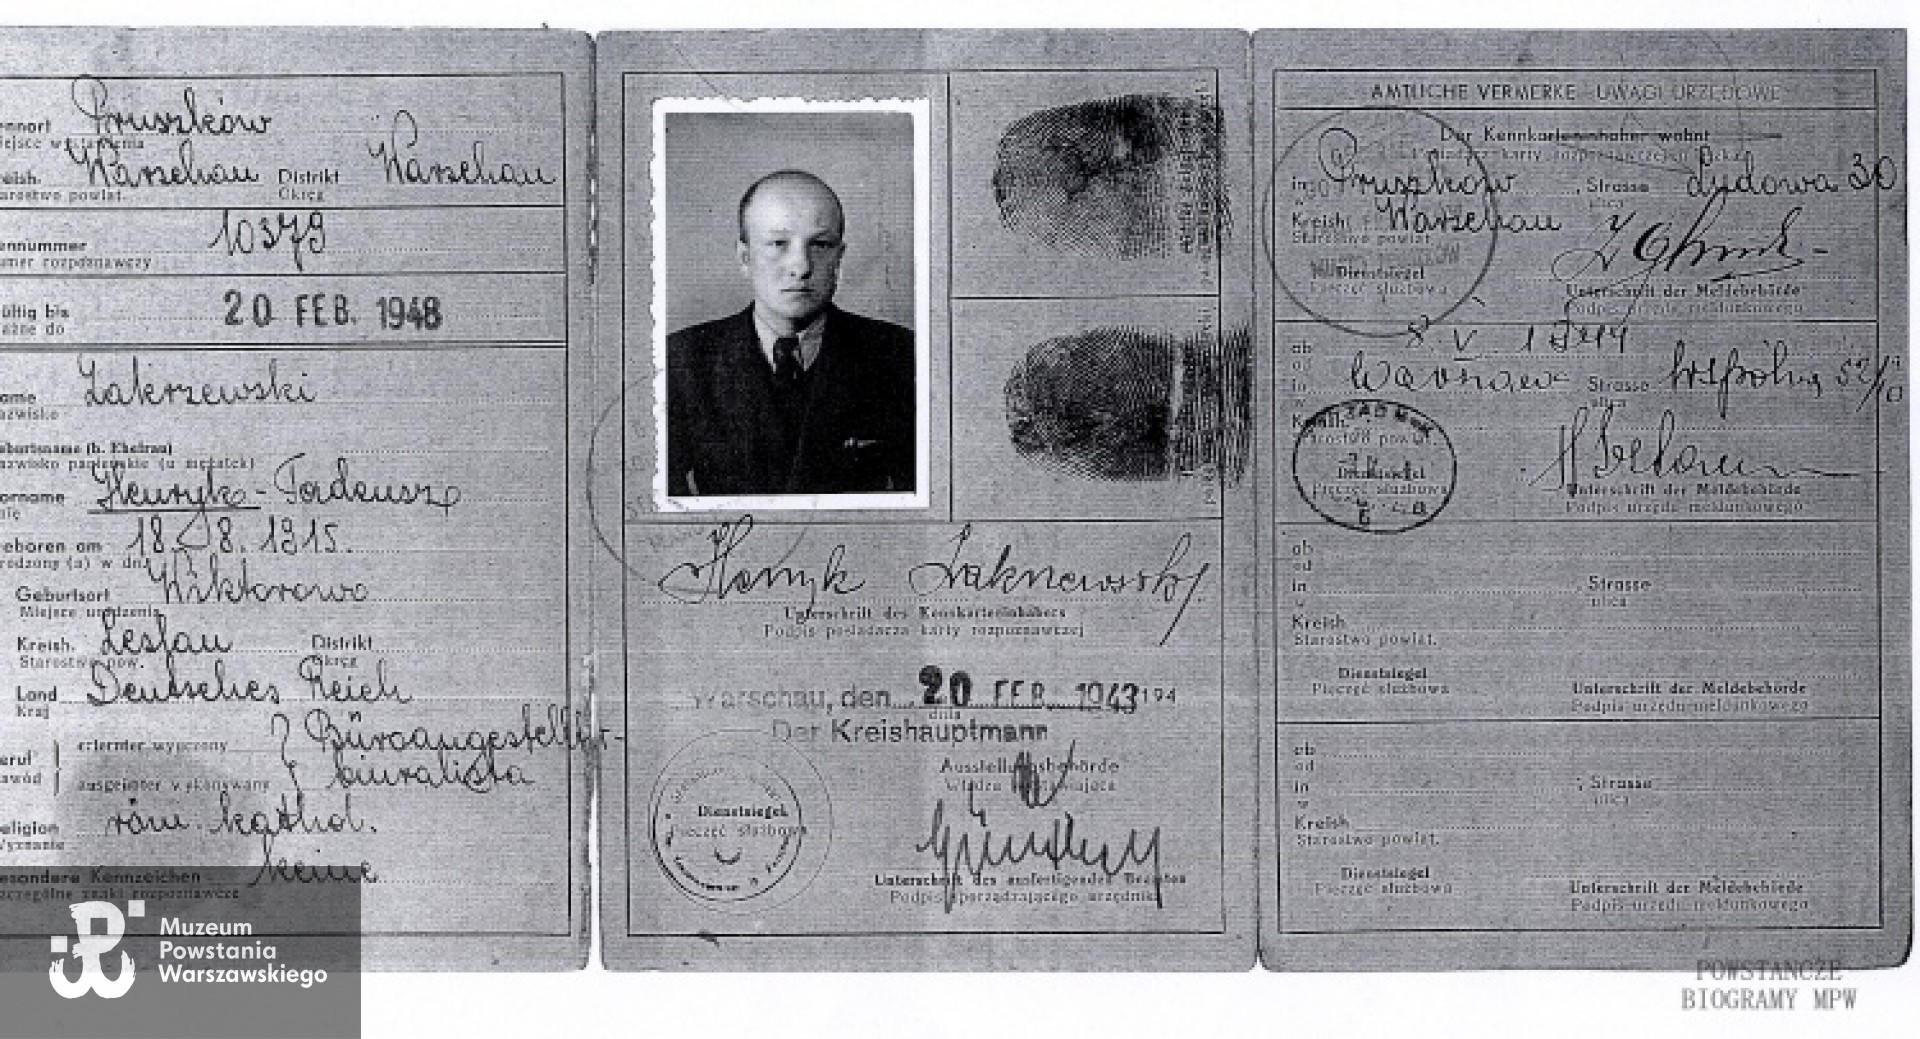 ennort Pruszków
iejsce wystawienia
reish. Warschau Distrikt Warschau
arostwo powiat. Okręg
ennummer 10379
umer rozpoznawczy
ültig bis 20 FEB. 1948
ażne do
ame Zakrzewski
azwisko
eburtsname (b. Ehefrau)
azwisko panieńskie (u mężatek)
orname Henryk - Tadeusz
mię
eboren am 18. 8. 1915.
rodzony (a) w dniu
Geburtsort Wiktorowo
Miejsce urodzenia
Kreish. Leslau Distrikt
Starostwo pow. Okręg
Land Deutsches Reich
Kraj
eruf erlernter wyuczony Büroangestellter-
awód ausgeübter wykonywany biuralista
eligion röm. kathol.
Wyznanie
esondere Kennzeichen keine
zczególne znaki rozpoznawcze
Muzeum
Powstania
Warszawskiego
Henryk Zakrzewski
Unterschrift des Kennkarteninhabers
Podpis posiadacza karty rozpoznawczej
Warschau, den 20 FEB. 1943 194
dnia
Der Kreishauptmann
Ausstellungsbehörde
Władza wystawiająca
Dienstsiegel
Pieczęć służbowa
Unterschrift des ausfertigenden Beamten
Podpis sporządzającego urzędnika
AMTLICHE VERMERKE - UWAGI URZĘDOWE
Der Kennkarteninhaber wohnt
in Pruszków, Strasse Ludowa 30
w ulica
Kreish. Warschau
Starostwo powiat.
Dienstsiegel
Pieczęć służbowa
Unterschrift der Meldebehörde
Podpis urzędu meldunkowego
ab 8 V 1944
od
in Warschau Strasse Wspólna
w ulica
Kreish.
Starostwo powiat.
Dienstsiegel
Pieczęć służbowa
Unterschrift der Meldebehörde
Podpis urzędu meldunkowego
ab
od
in , Strasse
w ulica
Kreish
Starostwo powiat.
Dienstsiegel
Pieczęć służbowa
Unterschrift der Meldebehörde
Podpis urzędu meldunkowego
ab
od
in , Strasse
w ulica
Kreish
Starostwo powiat.
Dienstsiegel
Pieczęć służbowa
Unterschrift der Meldebehörde
Podpis urzędu meldunkowego
POWSTAŃCZE
BIOGRAMY MPW